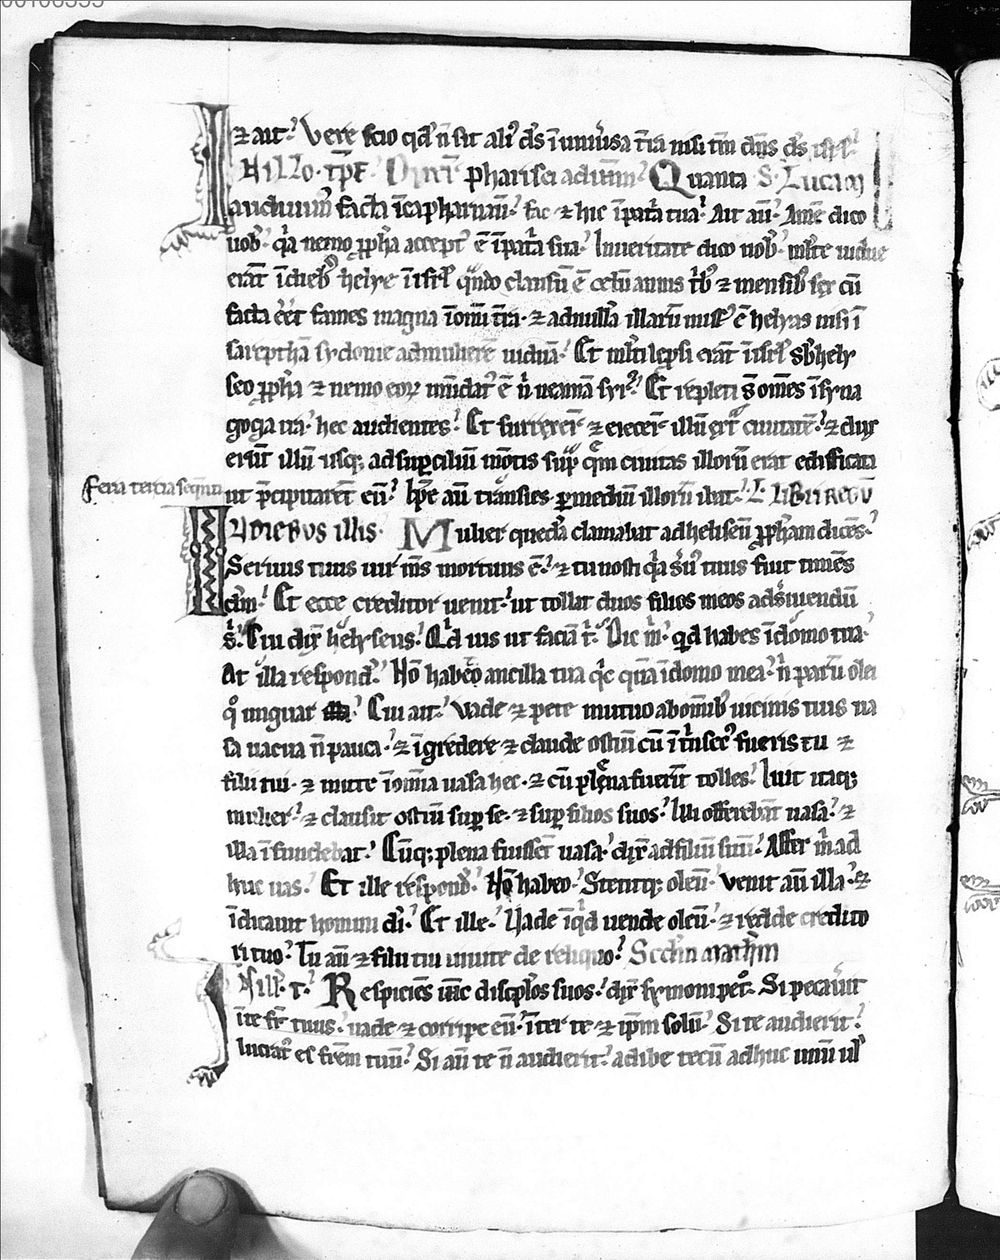 ⁊ ait. Vere scio qd' n̄ sit ali' ds ī uniu'sa t̄ra nisi tm̄ dn̄s ds isrl'.
IN ILLO. tp̄r. Dix̄t pharisei ad iħm. Quanta S. Lucam
audiuim' facta ī capharnaū. fac ⁊ hic ī pat'a tua. Ait aū. Am̄e dico
uob'. q'a nemo ꝓph̄a accept' ē ī pat'a sua. In ueritate dico uob'. mlt̄e uidue
erāt ī dieb' helye ī isrl' qn̄do clausū ē celū annis t'b' ⁊ mensib' sex cū
facta eēt fames magna ī om̄i t̄ra. ⁊ ad nulla illarū miss' ē helyas nisi ī
sarepthā sydonie ad mulierē uiduā. Et mlt̄i lep̄si erāt ī isrl' sb' hely
seo ꝓph̄a ⁊ nemo eoꝝ mūdat' ē n' neamā syr'. Et repleti s̄ om̄es ī syna
goga ira. hec audientes. Et surrexer̄t ⁊ eiecer̄t illū ext̄ ciuitatē. ⁊ dux
erūt illū usq; ad suꝑciliū mōtis sup' qm̄ ciuitas illorū erat edificata
Feria tercia sequn̄ti
ut p̄cipitarēt eū. Ip̄e aū trāsiens ꝑ mediū illorū ibat. L. LIBRI REGŪ
IN DIEBUS illis. Mulier quedā clamabat ad heliseū ꝓph̄am dicēs.
Seruus tuus uir m̄s mortuus ē. ⁊ tu nosti q'a s'u' tuus fuit timēs
dm̄. Et ecce creditor uenit. ut tollat duos filios meos ad s'uiendū
s'. Cui dix̄ helyseus. Qd uis ut faciā t'. Dic m'. qd habes ī domo tua.
At illa respond'. Nō habeo ancilla tua q'c quā ī domo mea. n' parū olei
q° unguar. Cui ait. Vade ⁊ pete mutuo ab om̄ib' uicinis tuis ua
sa uacua n̄ pauca. ⁊ īgredere ⁊ claude ostiū cū īt'nsec' fueris tu ⁊
filii tui. ⁊ mitte ī om̄ia uasa hec. ⁊ cū plena fuerīt tolles. Iuit itaq;
mulier. ⁊ clausit ostiū suꝑ se. ⁊ suꝑ filios suos. Illi offerebāt uasa. ⁊
illa īfundebat. Cūq; plena fuissēt uasa. dix̄ ad filiū suū. Affer m' ad
huc uas. Et ille respond'. Nō habeo. Stetitq; oleū. Venit aū illa. ⁊
īdicauit homini di'. Et ille. Uade īq'd uende oleū. ⁊ redde credito
ri tuo. Tu aū ⁊ filii tui uiuite de reliquo. Scdm̄ math̄m
IN ILL'. T'. Respiciēs iħc discplōs suos. dix̄ symoni pet°. Si pecau'it
ī te fr̄ tuus. uade ⁊ corripe eū. īter te ⁊ ip̄m solū. Si te audierit.
lucrat' es fr̄em tuū. Si aū te n̄ audierit. adibe tecū adhuc unū ul'